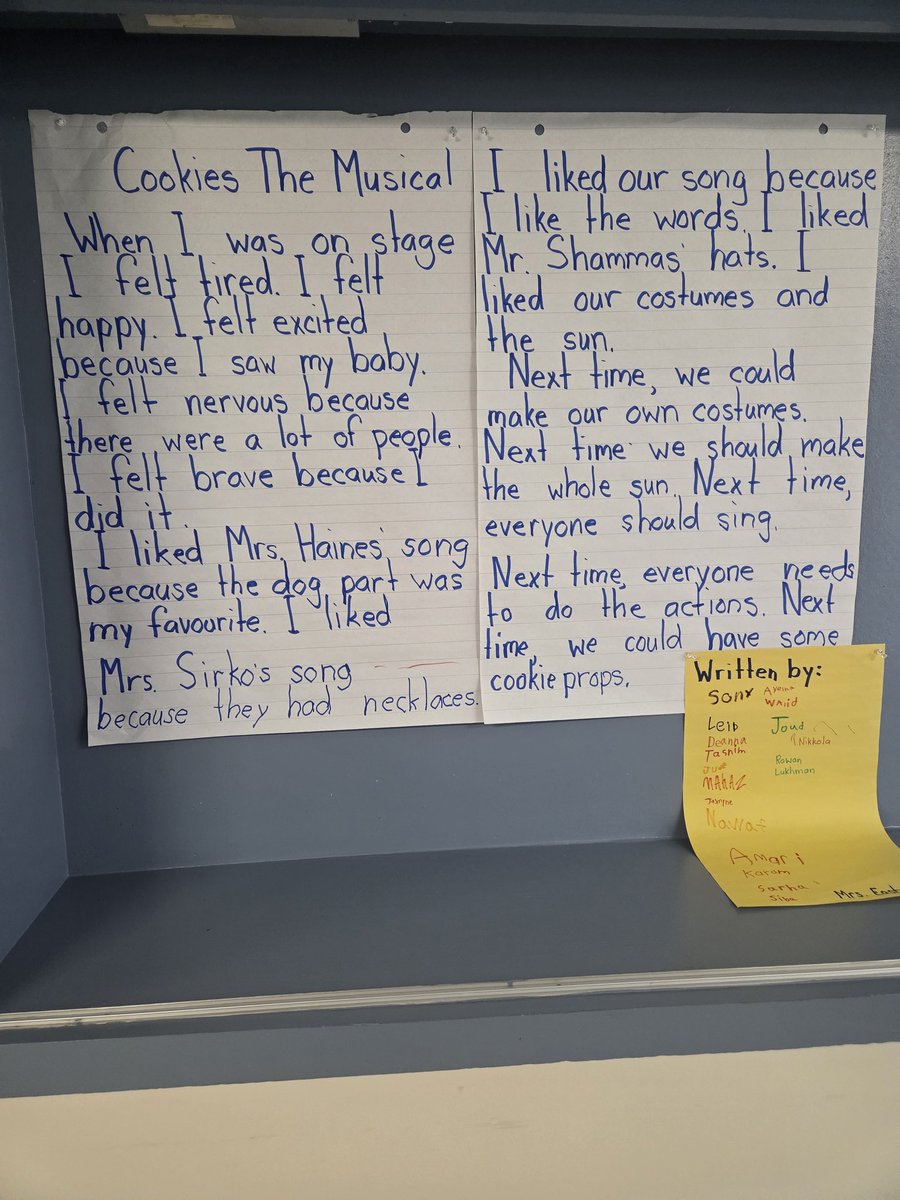 Cookies The Musical
When I was on stage
I felt tired. I felt
happy. I felt excited
because I saw my baby.
I felt nervous because
there were a lot of people.
I felt brave because I
did it.
I liked Mrs. Haines' song
because the dog part was
my favourite. I liked
Mrs. Sirko's song
because they had necklaces.
I liked our song because
I like the words. I liked
Mr. Shammas' hats. I
liked our costumes and
the sun.
Next time, we could
make our own costumes.
Next time we should make
the whole sun. Next time,
everyone should sing.
Next time, everyone needs
to do the actions. Next
time, we could have some
cookie props.
Written by:
Sony
Walid
Leip
Joud
Deanna
Nikkola
Tasnim
Rowan
Lukhman
MAHAZ
Nawaf
Amari
Karam
Sarha
Siba
Mrs.